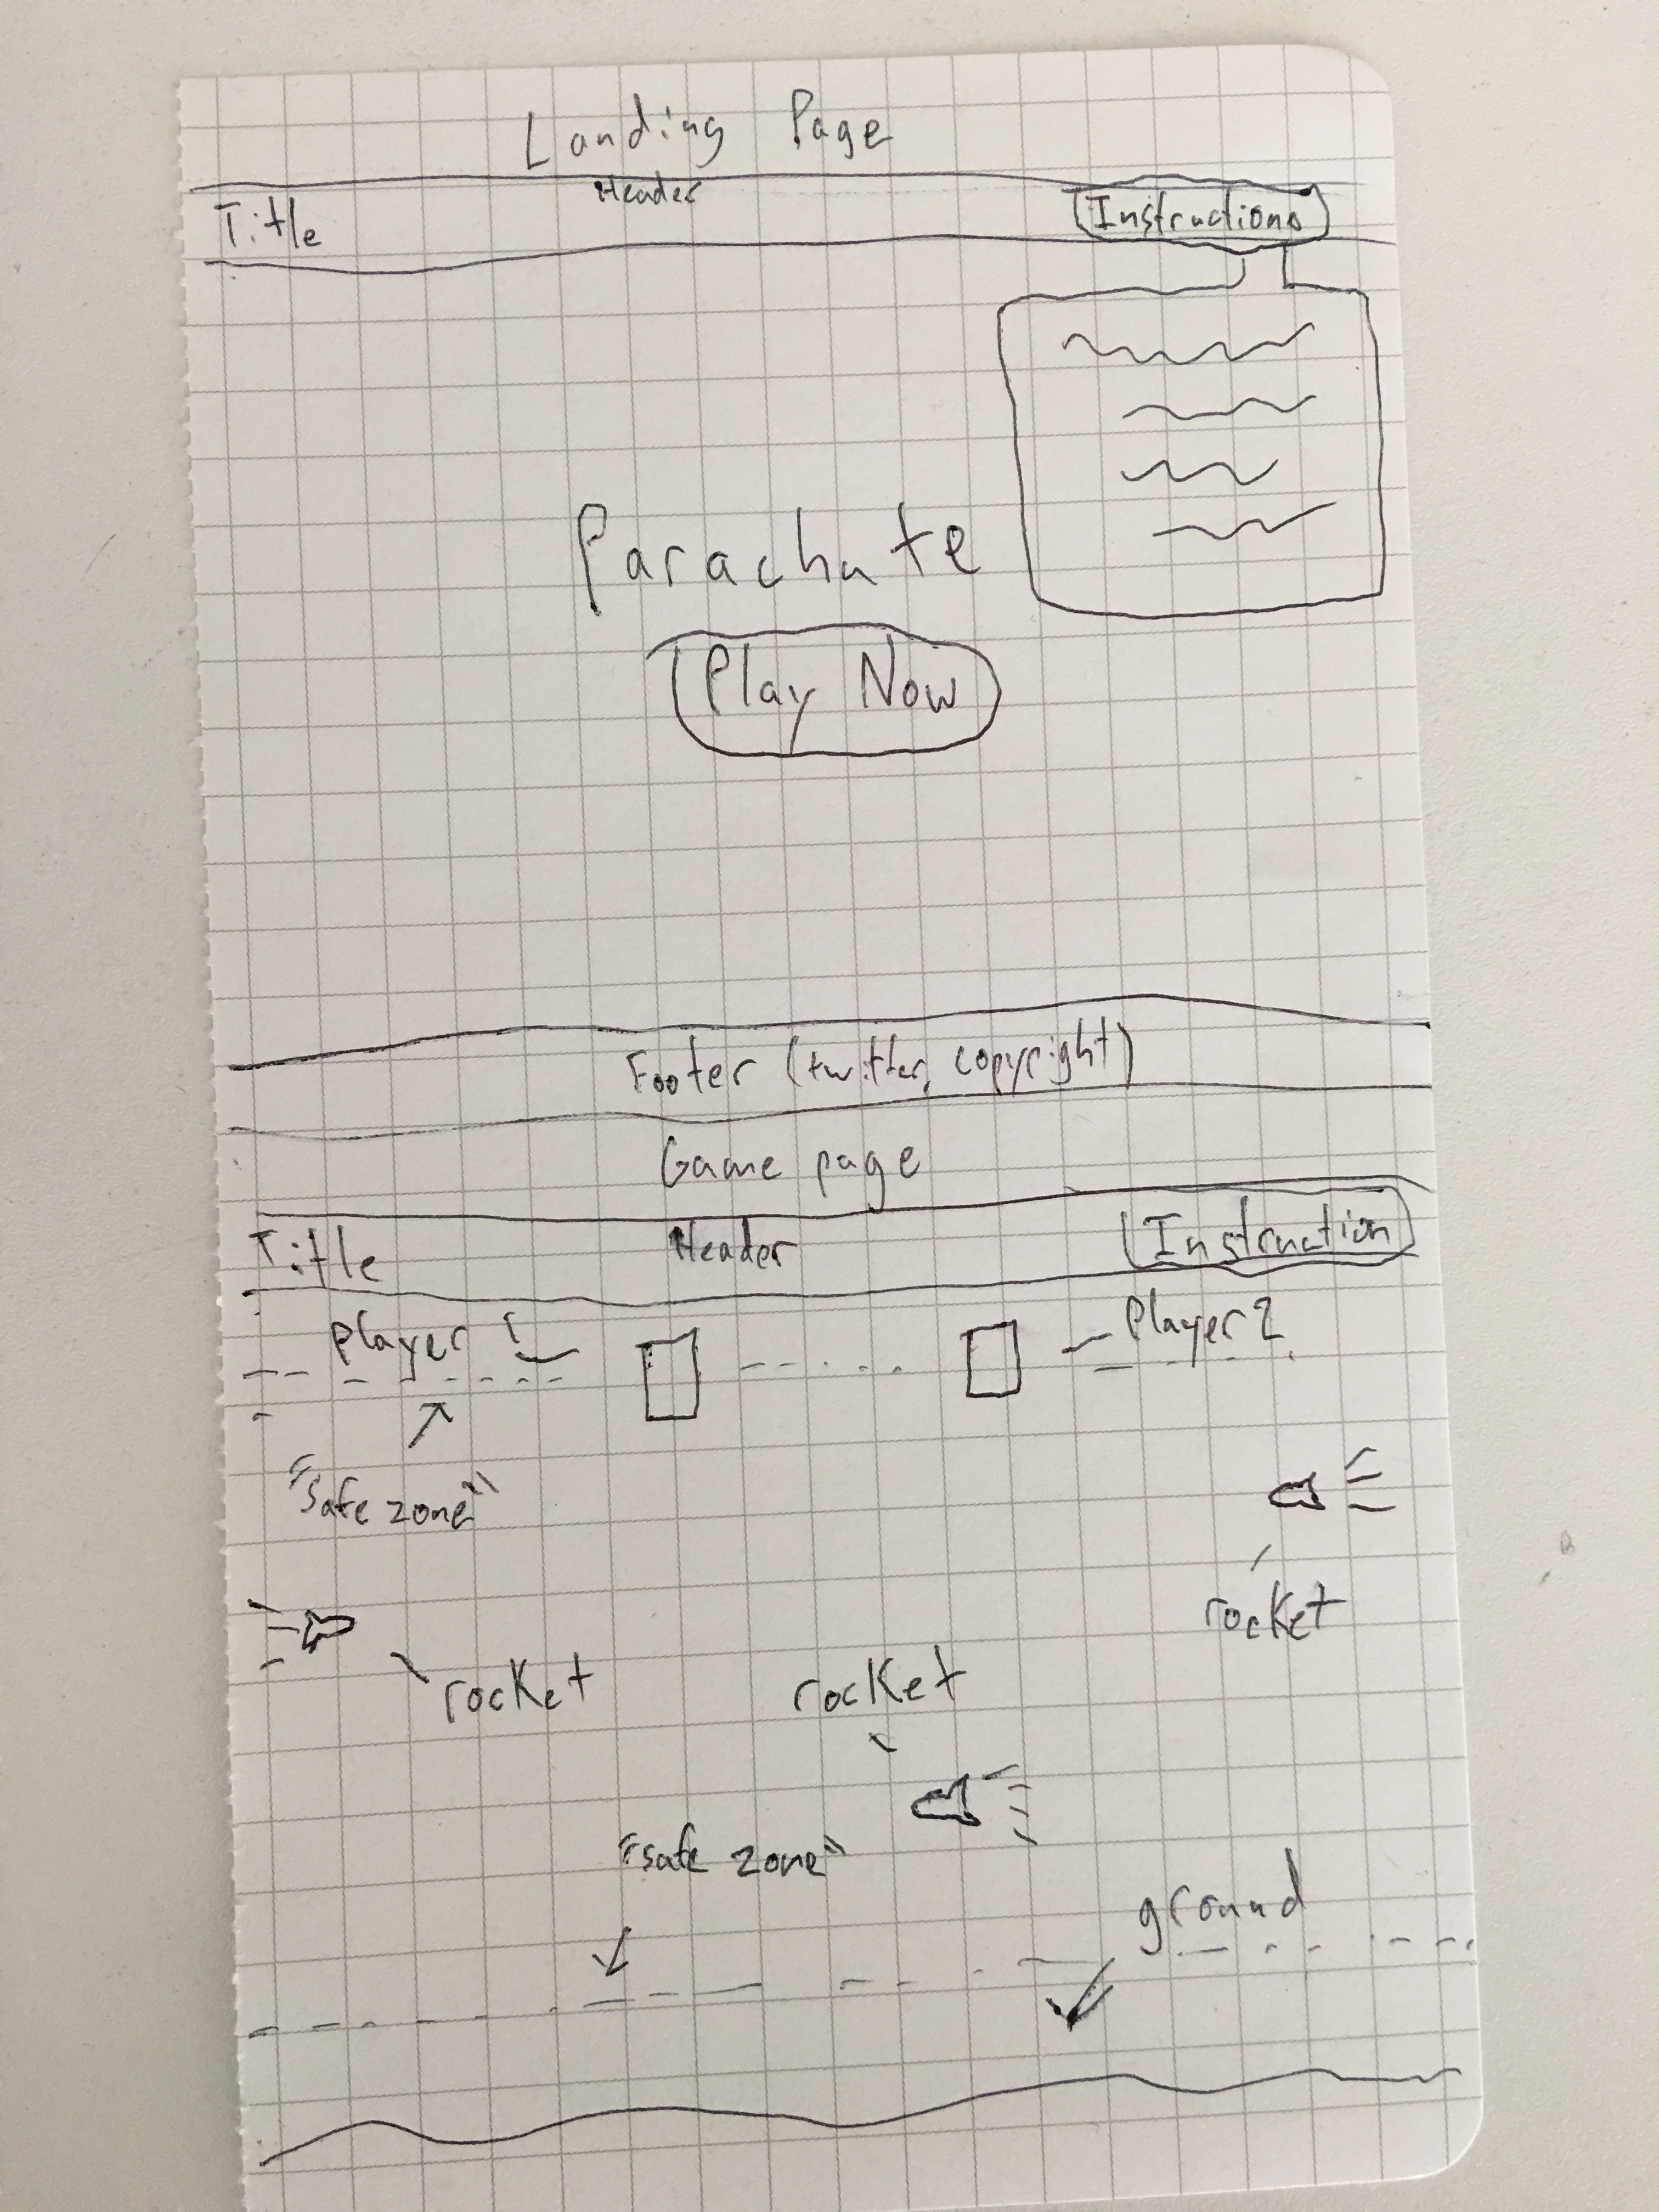 Landing Page
Header
Title
Instructions
Parachute
Play Now
Footer (twitter, copyright)
Game page
Title Header Instruction
Player 1
Player 2
"safe zone"
rocket
rocket
rocket
"safe zone"
ground